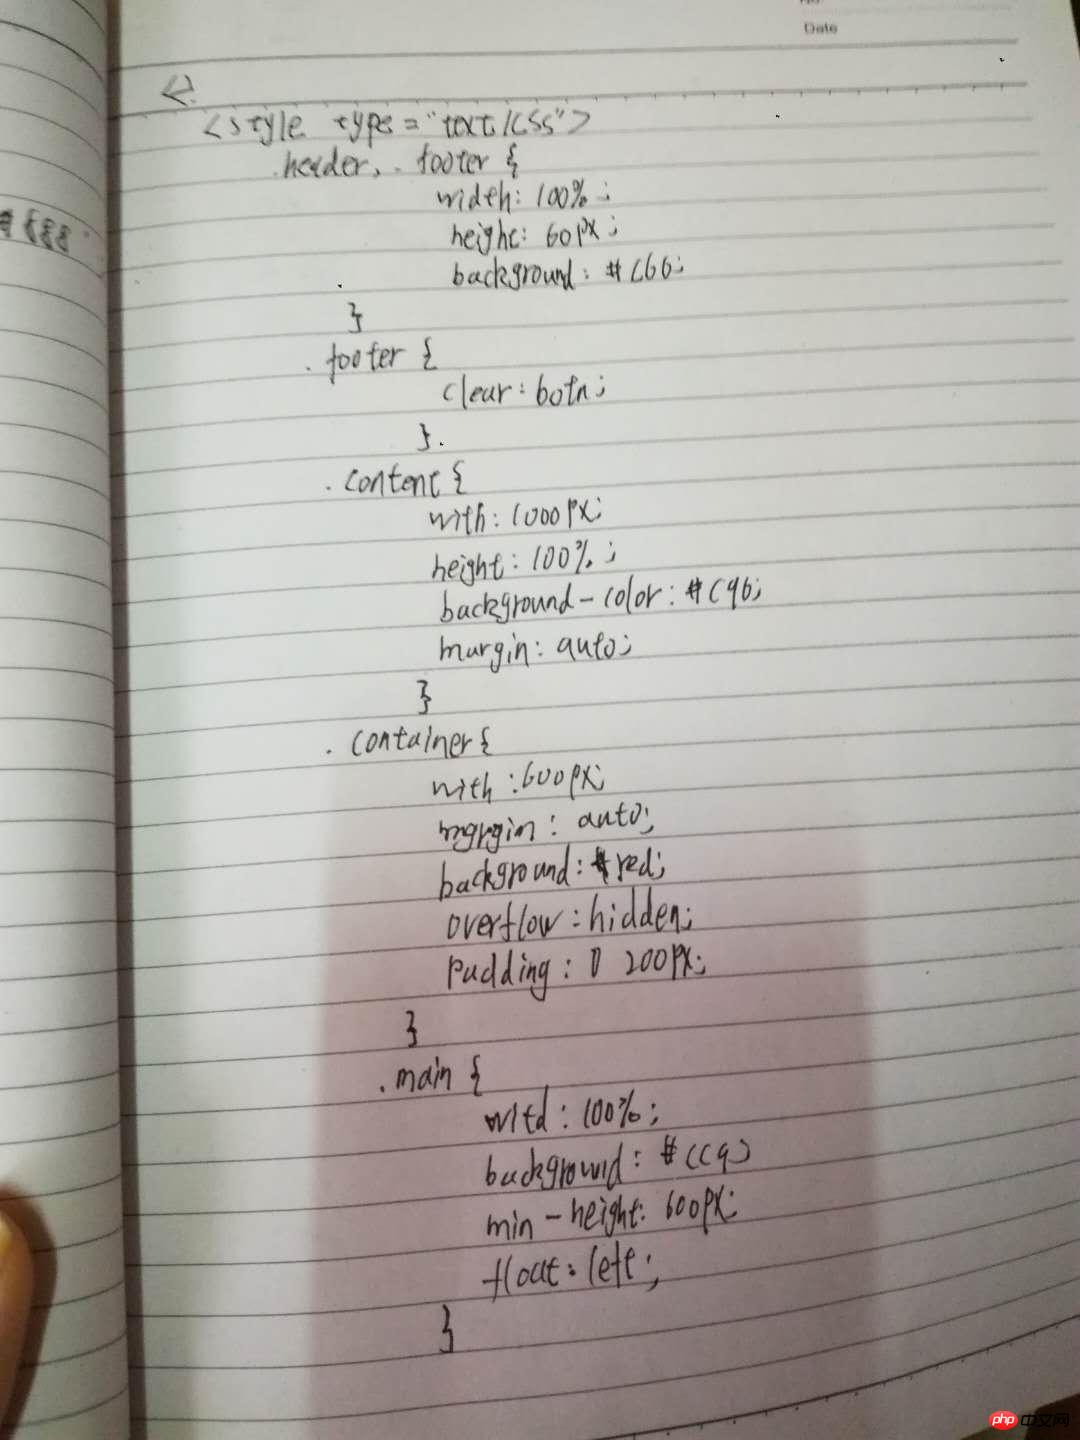 Date
<style type="text/css">
.header, .footer {
width: 100%;
height: 60px;
background: #c66;
}
.footer {
clear: both;
}
.content {
with: 1000px;
height: 100%;
background-color: #c96;
margin: auto;
}
.container {
with: 600px;
margin: auto;
background: red;
overflow: hidden;
padding: 0 200px;
}
.main {
witd: 100%;
background: #cc9
min-height: 600px;
float: left;
}
php 中文网